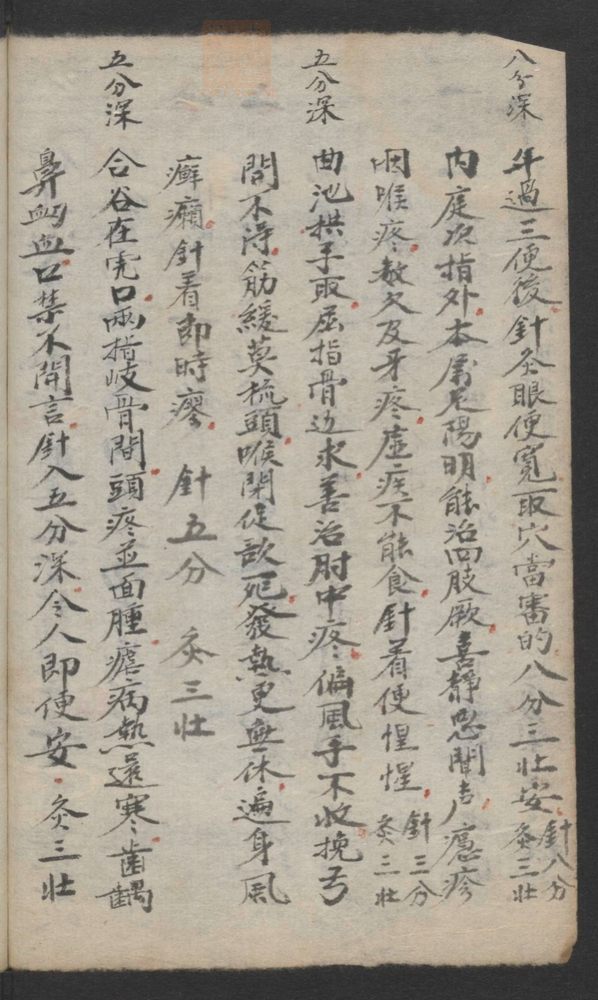 八分深
年過三便後針灸眼便寬取穴當審的八分三壯安 針八分
灸三壯
内庭次指外本属足陽明能治四肢厥喜静惡聞声癮疹
咽喉疼数欠及牙疼虐疾不能食針着便惺惺 針三分
灸三壯
五分深
曲池拱手取屈指骨边求善治肘中疼偏風手不收挽弓
開不淂筋緩莫梳頭喉閉促欲死發熱更無休遍身風
癬癩針着即時瘳 針五分 灸三壯
五分深
合谷在虎口兩指岐骨間頭疼並面腫瘧病熱還寒齒齲
鼻衂血口禁不開言針入五分深令人即便安 灸三壯